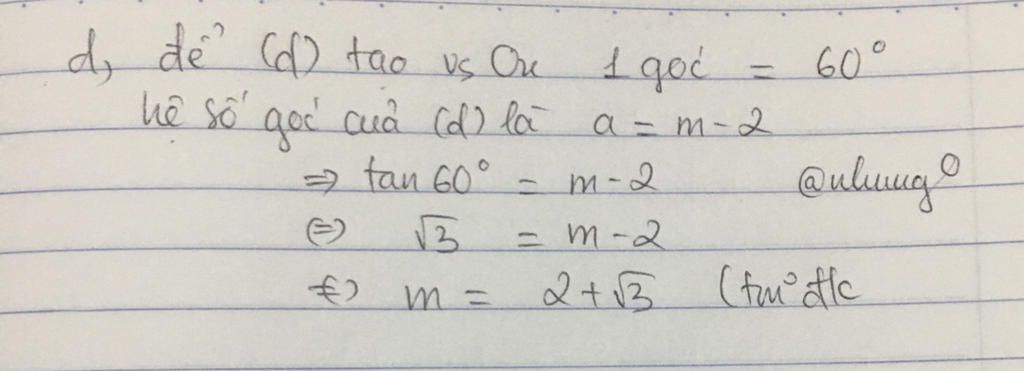 d, để (d) tạo vs Ox 1 góc = 60°
hệ số góc của (d) là a = m - 2
⇒ tan 60° = m - 2 @nhung
⇔ √3 = m - 2
⇔ m = 2 + √3 (tm đk